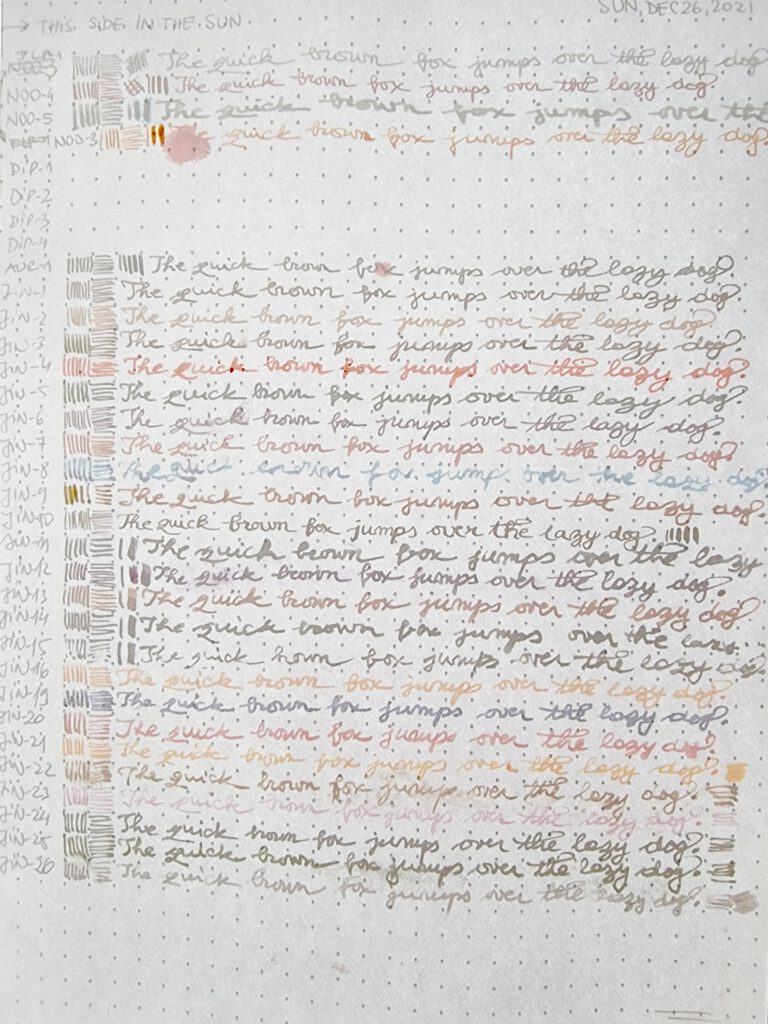 → THIS SIDE IN THE SUN
SUN, DEC 26, 2021
The quick brown fox jumps over the lazy dog
NOO-4 The quick brown fox jumps over the lazy dog.
NOO-5 The quick brown fox jumps over the
NOO-3 quick brown fox jumps over the lazy dog.
DIP-1
DIP-2
DIP-3
DIP-4
AUR-1 The quick brown fox jumps over the lazy dog.
JIN-1 The quick brown fox jumps over the lazy dog.
JIN-2 The quick brown fox jumps over the lazy dog.
JIN-3 The quick brown fox jumps over the lazy dog.
JIN-4 The quick brown fox jumps over the lazy dog.
JIN-5 The quick brown fox jumps over the lazy dog.
JIN-6 The quick brown fox jumps over the lazy dog.
JIN-7 The quick brown fox jumps over the lazy dog.
JIN-8 The quick fox jump over the lazy dog.
JIN-9 The quick brown fox jumps over the lazy dog.
JIN-10 The quick brown fox jumps over the lazy dog.
JIN-11 The quick brown fox jumps over the lazy
JIN-12 The quick brown fox jumps over the lazy dog.
JIN-13 The quick brown fox jumps over the lazy dog.
JIN-14 The quick brown fox jumps over the lazy
JIN-15 The quick brown fox jumps over the lazy dog.
JIN-16 The quick brown fox jumps over the lazy dog.
JIN-19 The quick brown fox jumps over the lazy dog.
JIN-20 The quick brown fox jumps over the lazy dog.
JIN-21 The quick brown fox jumps over the lazy dog.
JIN-22 The quick brown fox jumps over the lazy dog.
JIN-23 The quick brown fox jumps over the lazy dog.
JIN-24 The quick brown fox jumps over the lazy dog.
JIN-25 The quick brown fox jumps over the lazy dog.
JIN-26 The quick brown fox jumps over the lazy dog.